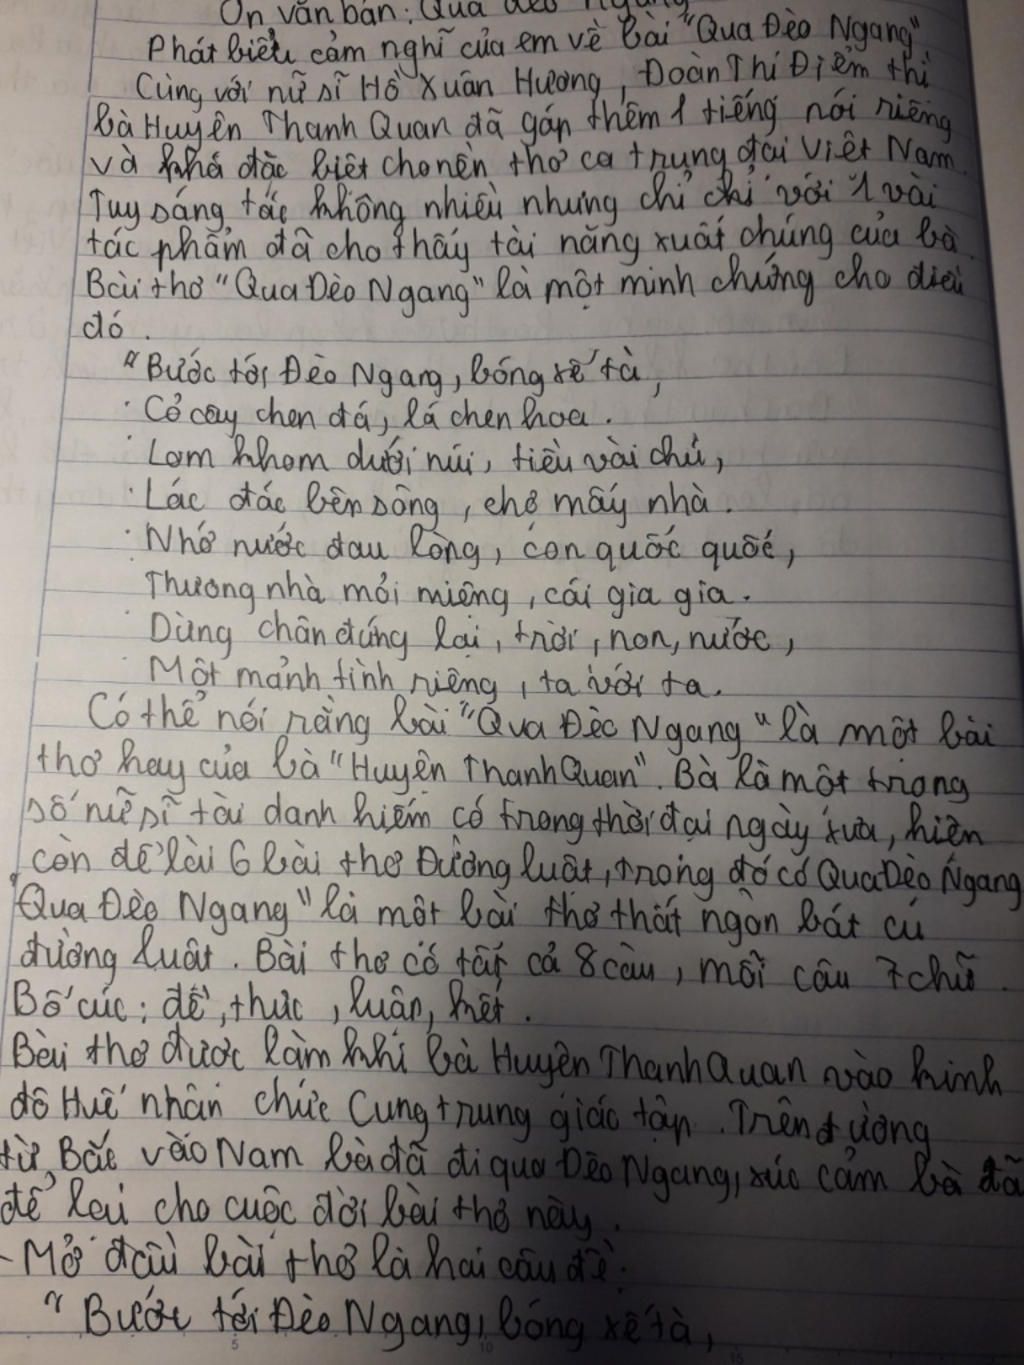 Ôn văn bản: Qua đèo Ngang
Phát biểu cảm nghĩ của em về bài "Qua Đèo Ngang"
Cùng với nữ sĩ Hồ Xuân Hương, Đoàn Thị Điểm thì
bà Huyện Thanh Quan đã góp thêm 1 tiếng nói riêng
và khá đặc biệt cho nền thơ ca trung đại Việt Nam.
Tuy sáng tác không nhiều nhưng chỉ chỉ với 1 vài
tác phẩm đã cho thấy tài năng xuất chúng của bà.
Bài thơ "Qua Đèo Ngang" là một minh chứng cho điều
đó.
"Bước tới Đèo Ngang, bóng xế tà,
Cỏ cây chen đá, lá chen hoa.
Lom khom dưới núi, tiều vài chú,
Lác đác bên sông, chợ mấy nhà.
Nhớ nước đau lòng, con quốc quốc,
Thương nhà mỏi miệng, cái gia gia.
Dừng chân đứng lại, trời, non, nước,
Một mảnh tình riêng, ta với ta.
Có thể nói rằng bài "Qua Đèo Ngang" là một bài
thơ hay của bà "Huyện Thanh Quan". Bà là một trong
số nữ sĩ tài danh hiếm có trong thời đại ngày xưa, hiện
còn để lại 6 bài thơ Đường luật, trong đó có Qua Đèo Ngang
"Qua Đèo Ngang" là một bài thơ thất ngôn bát cú
đường luật. Bài thơ có tất cả 8 câu, mỗi câu 7 chữ.
Bố cục: đề, thực, luận, kết.
Bài thơ được làm khi bà Huyện Thanh Quan vào kinh
đô Huế nhận chức Cung trung giáo tập. Trên đường
từ Bắc vào Nam bà đã đi qua Đèo Ngang, xúc cảm bà đã
để lại cho cuộc đời bài thơ này.
- Mở đầu bài thơ là hai câu đề:
"Bước tới Đèo Ngang, bóng xế tà,
5 10 15